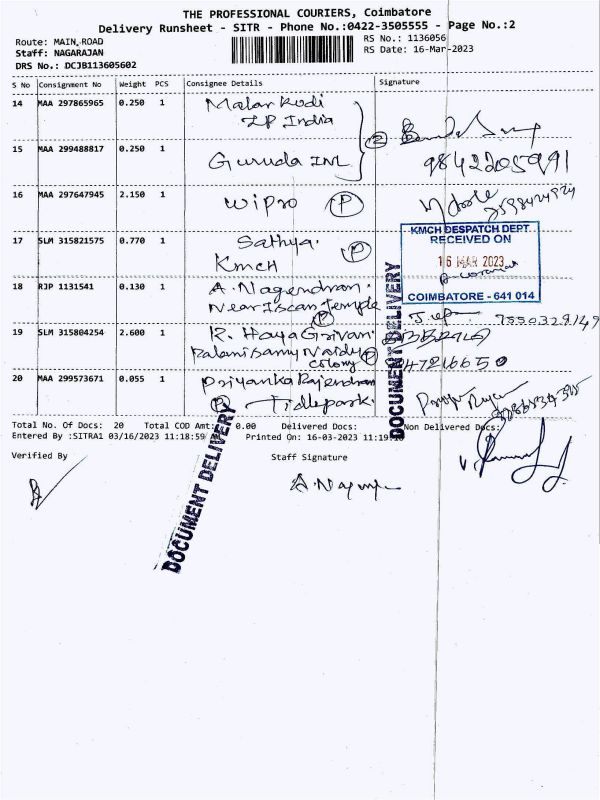 THE PROFESSIONAL COURIERS, Coimbatore
Delivery Runsheet - SITR - Phone No.:0422-3505555 - Page No.:2
Route: MAIN,ROAD
Staff: NAGARAJAN
DRS No.: DCJB113605602
RS No.: 1136056
RS Date: 16-Mar-2023
S No Consignment No Weight PCS Consignee Details Signature
14 MAA 297865965 0.250 1 Malar Kodi
IP India
15 MAA 299488817 0.250 1 Guruda INL 2
9842205991
16 MAA 297647945 2.150 1 Wipro P
17 SLM 315821575 0.770 1 Sathya. P
KMCH
KMCH DESPATCH DEPT.
RECEIVED ON
16 MAR 2023
COIMBATORE - 641 014
18 RJP 1131541 0.130 1 A. Nagendran.
Near Iscan Temple
P
7550328149
19 SLM 315804254 2.600 1 K. HayaGrivan.
Palanisamy Naidu P
colony
20 MAA 299573671 0.055 1 Priyanka Rajendran
P Tidlepark.
DOCUMENT DELIVERY
Total No. Of Docs: 20 Total COD Amt: 0.00 Delivered Docs: Non Delivered Docs:
Entered By :SITRA1 03/16/2023 11:18:59 Printed On: 16-03-2023 11:19:
Verified By Staff Signature
DOCUMENT DELIVERY